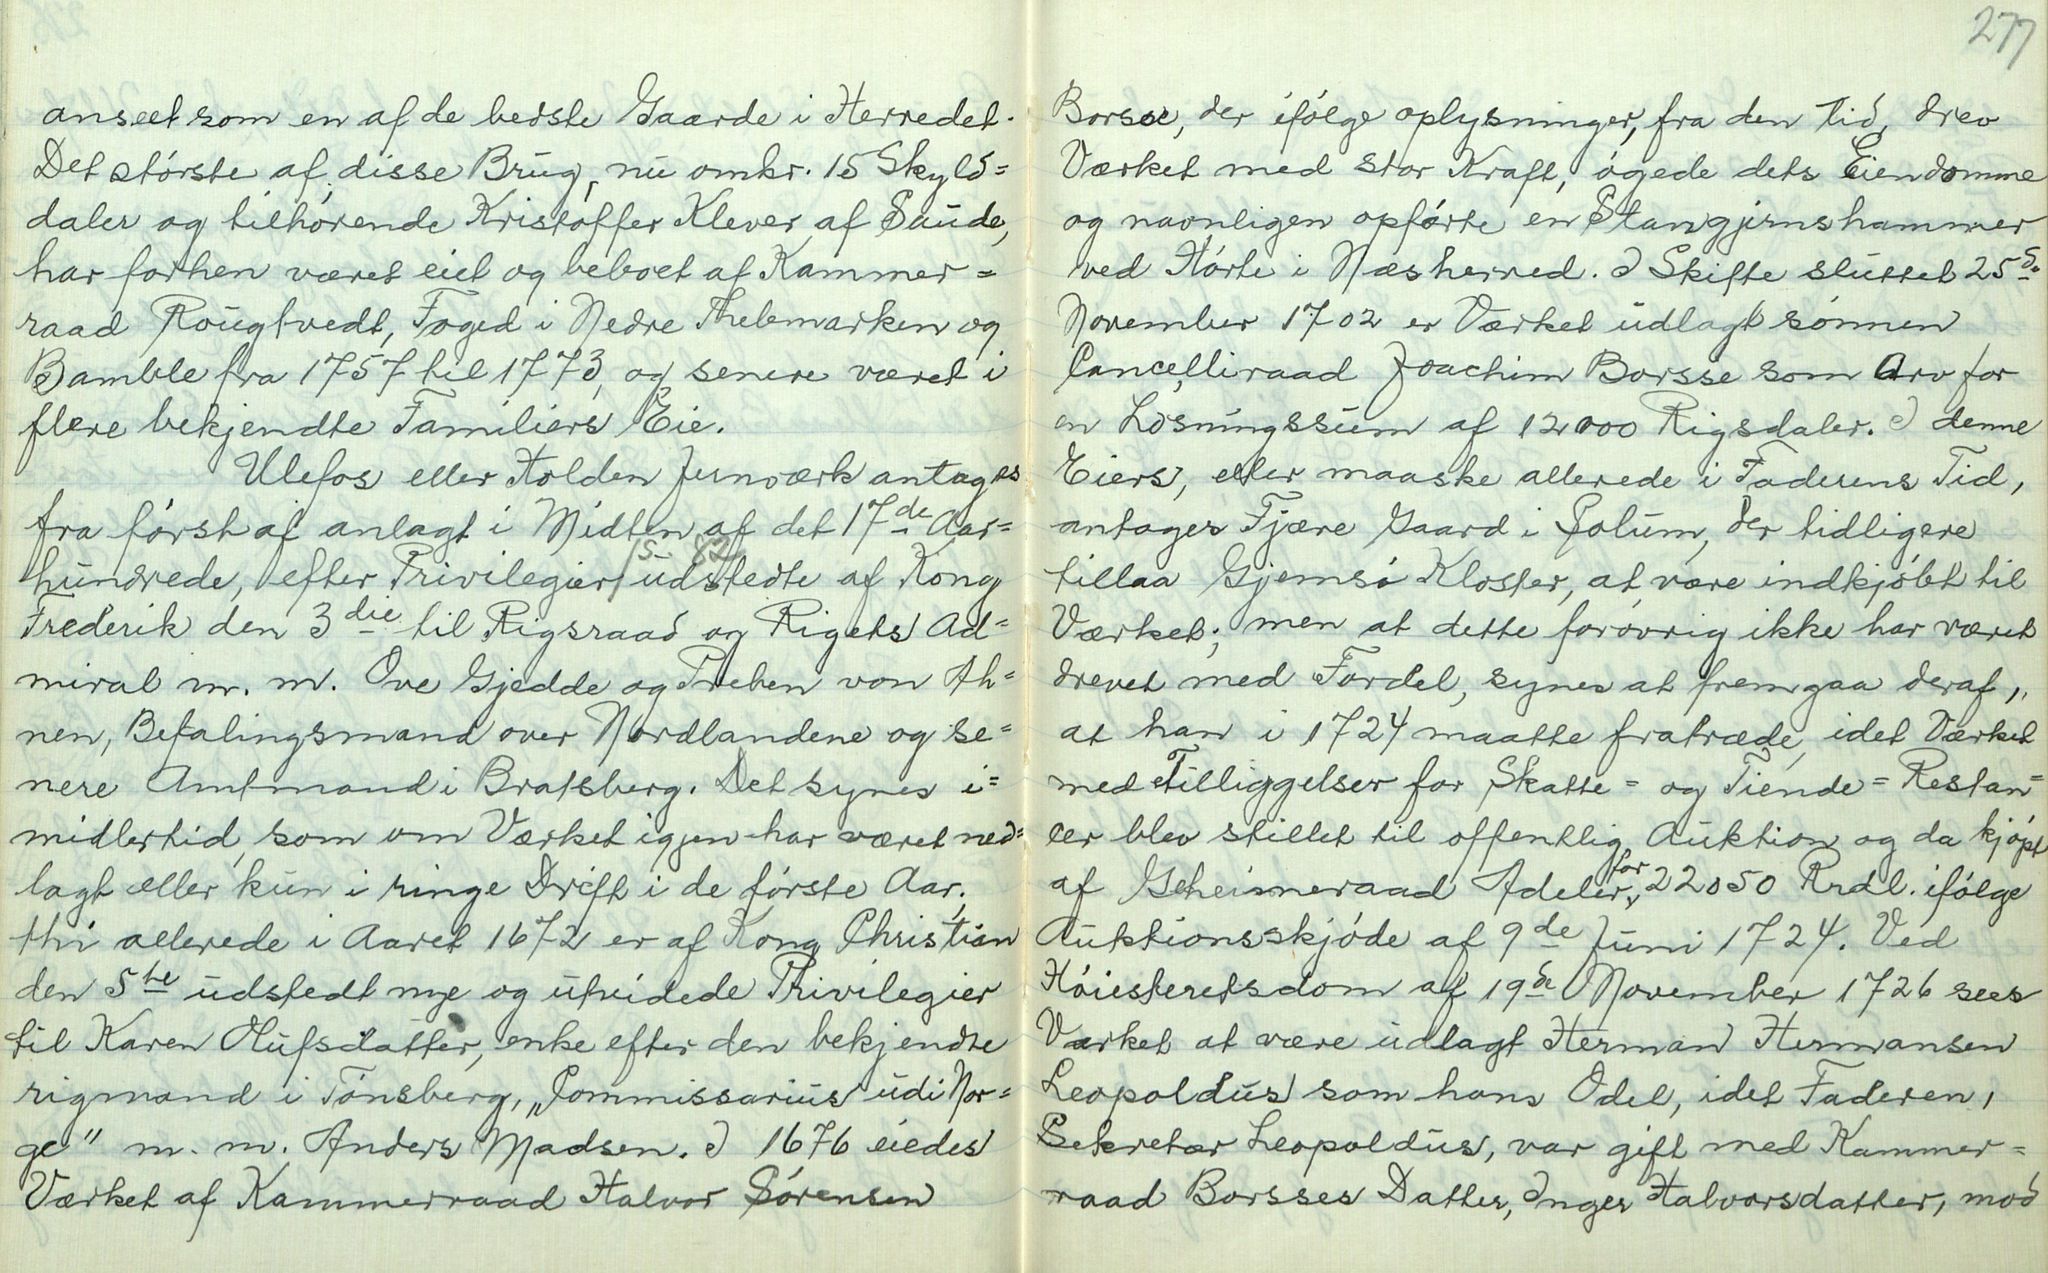 anseet som en af de bedste Gaarde i Herredet.
Det største af disse Brug, nu omkr. 15 Skyld=
daler og tilhørende Kristoffer Klever af Saude,
har forhen været eiet og beboet af Kammer=
raad Rougtvedt, Foged i Nedre Thelemarken og
Bamble fra 1757 til 1773, og senere været i
flere bekjendte Familiers Eie.
Ulefos eller Holden Jernværk antages
fra først af anlagt i Midten af det 17de Aar=
hundrede, efter Privilegier udstedte af Kong
Frederik den 3die til Rigsraad og Rigets Ad=
miral m. m. Ove Gjedde og Preben von Ah=
nen, Befalingsmand over Nordlandene og se=
nere Amtmand i Bratsberg. Det synes i=
midlertid, som om Værket igjen har været ned=
lagt eller kun i ringe Drift i de første Aar,
thi allerede i Aaret 1672 er af Kong Christian
den 5te udstedt nye og utvidede Privilegier
til Karen Olufsdatter, enke efter den bekjendte
rigmand i Tønsberg, „Commissarius udi Nor=
ge" m. m. Anders Madsen. I 1676 eiedes
Værket af Kammerraad Halvor Sørensen
277
Borsse, der ifølge oplysninger, fra den tid, drev
Værket med stor Kraft, øgede dets Eiendomme
og navnligen opførte en Stangjernshammer
ved Hørte i Næsherred. I Skifte sluttet 25de
November 1702 er Værket udlagt sønnen
Cancelliraad Joachim Borsse som Arv for
en Løsningssum af 12000 Rigsdaler. I denne
Eiers, eller maaske allerede i Faderens Tid,
antages Fjære Gaard i Solum, der tidligere
tillaa Gjemsø Kloster, at være indkjøbt til
Værket; men at dette forøvrig ikke har været
drevet med Fordel, synes at fremgaa deraf,
at han i 1724 maatte fratræde, idet Værket
med Tilliggelser for Skatte= og Tiende=Restan=
cer blev stillet til offentlig Auktion og da kjøpt
af Geheimeraad Adeler, for 22050 Rrdl. ifølge
Auktionsskjøde af 9de Juni 1724. Ved
Høiesteretsdom af 19de November 1726 sees
Værket at være udlagt Herman Hermansen
Leopoldus som hans Odel, idet Faderen,
Sekretær Leopoldus, var gift med Kammer=
raad Borsses Datter, Inger Halvorsdatter, mod